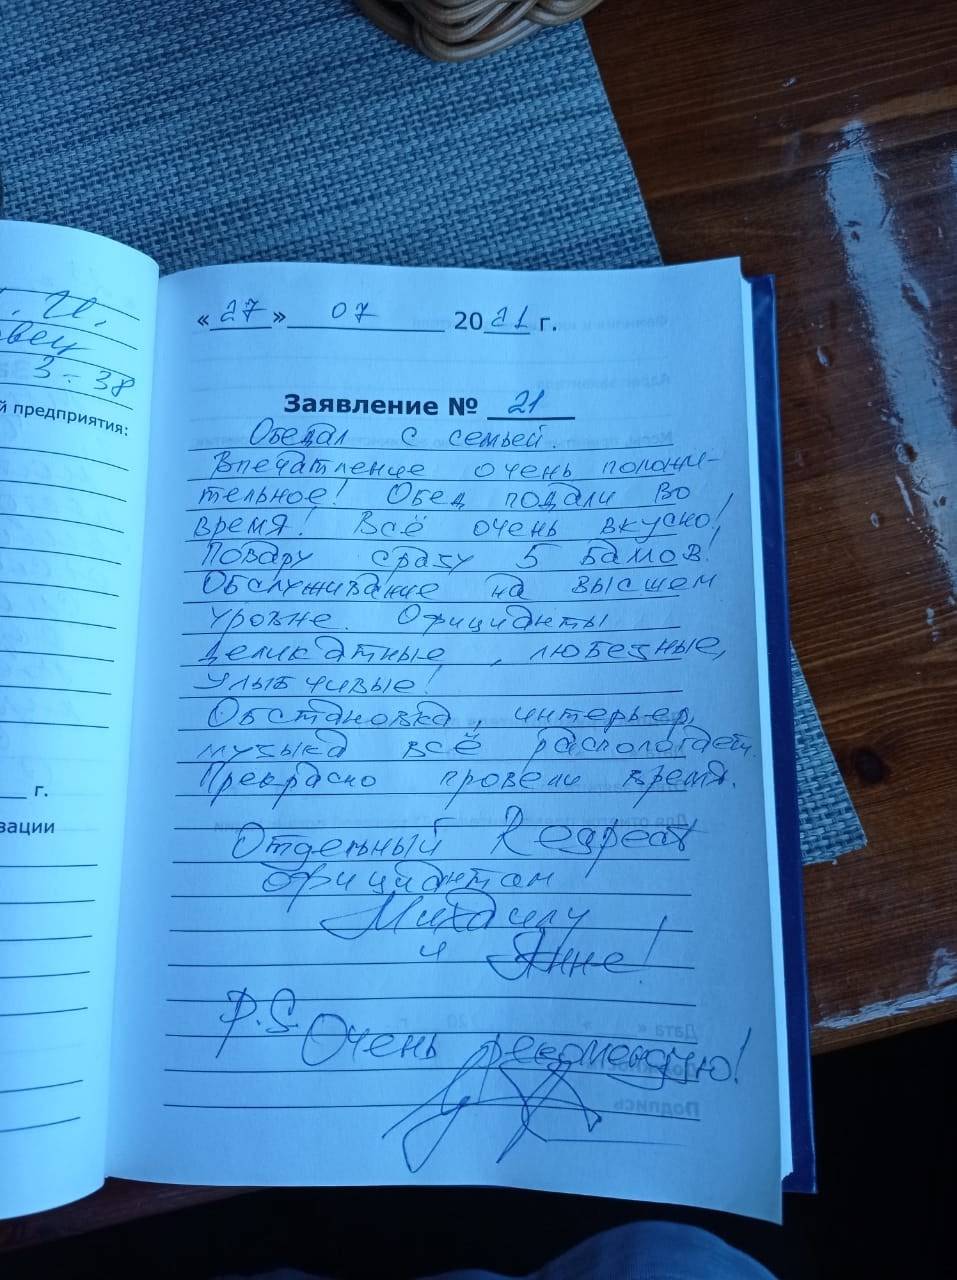 вец
3-38
й предприятия:
г.
зации
«27» 07 2021 г.
Заявление № 21
Обедал с семьей.
Впечатление очень положи-
тельное! Обед подали во
время! Всё очень вкусно!
Повару сразу 5 баллов!
Обслуживание на высшем
уровне. Официанты
деликатные, любезные,
улыбчивые!
Обстановка, интерьер,
музыка всё распологает.
Прекрасно провели время.
Отдельный
официантам
Михаилу
и Янне!
P.S. Очень рекомендую!